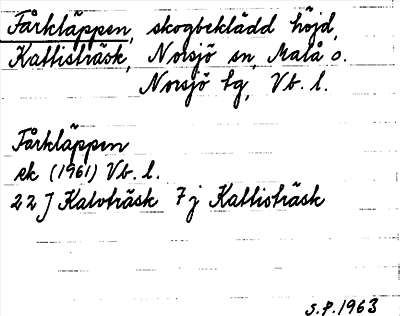 Fårkläppen, skogbeklädd höjd,
Kattisträsk, Norsjö sn, Malå o.
Norsjö tg, Vb. l.
Fårkläppen
ek (1961) Vb. l.
22 J Kalvträsk 7 j Kattisträsk
S.P. 1963